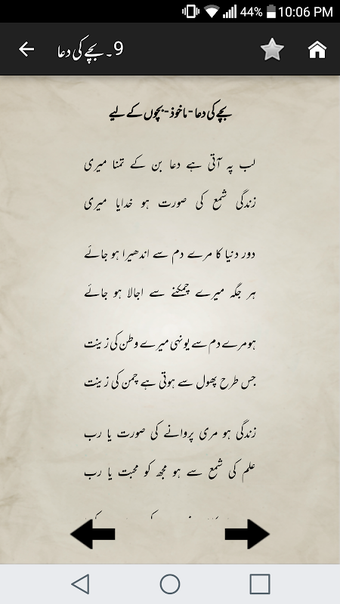 44% 10:06 PM
9۔ بچے کی دعا
بچے کی دعا - ماخوذ - بچوں کے لیے
لب پہ آتی ہے دعا بن کے تمنا میری
زندگی شمع کی صورت ہو خدایا میری
دور دنیا کا مرے دم سے اندھیرا ہو جائے
ہر جگہ میرے چمکنے سے اجالا ہو جائے
ہو مرے دم سے یونہی میرے وطن کی زینت
جس طرح پھول سے ہوتی ہے چمن کی زینت
زندگی ہو مری پروانے کی صورت یا رب
علم کی شمع سے ہو مجھ کو محبت یا رب